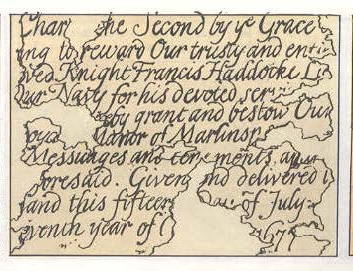 Char he Second by yᵉ Grace
ng to reward Our trusty and en
ved Knight Francis Haddocke Li
ur Navy for his devoted ser
eby grant and bestow Our
by Manor of Marlinsp
Messuages and ten ments
foresaid. Given nd delivered
and this fifteen of July
eventh year of